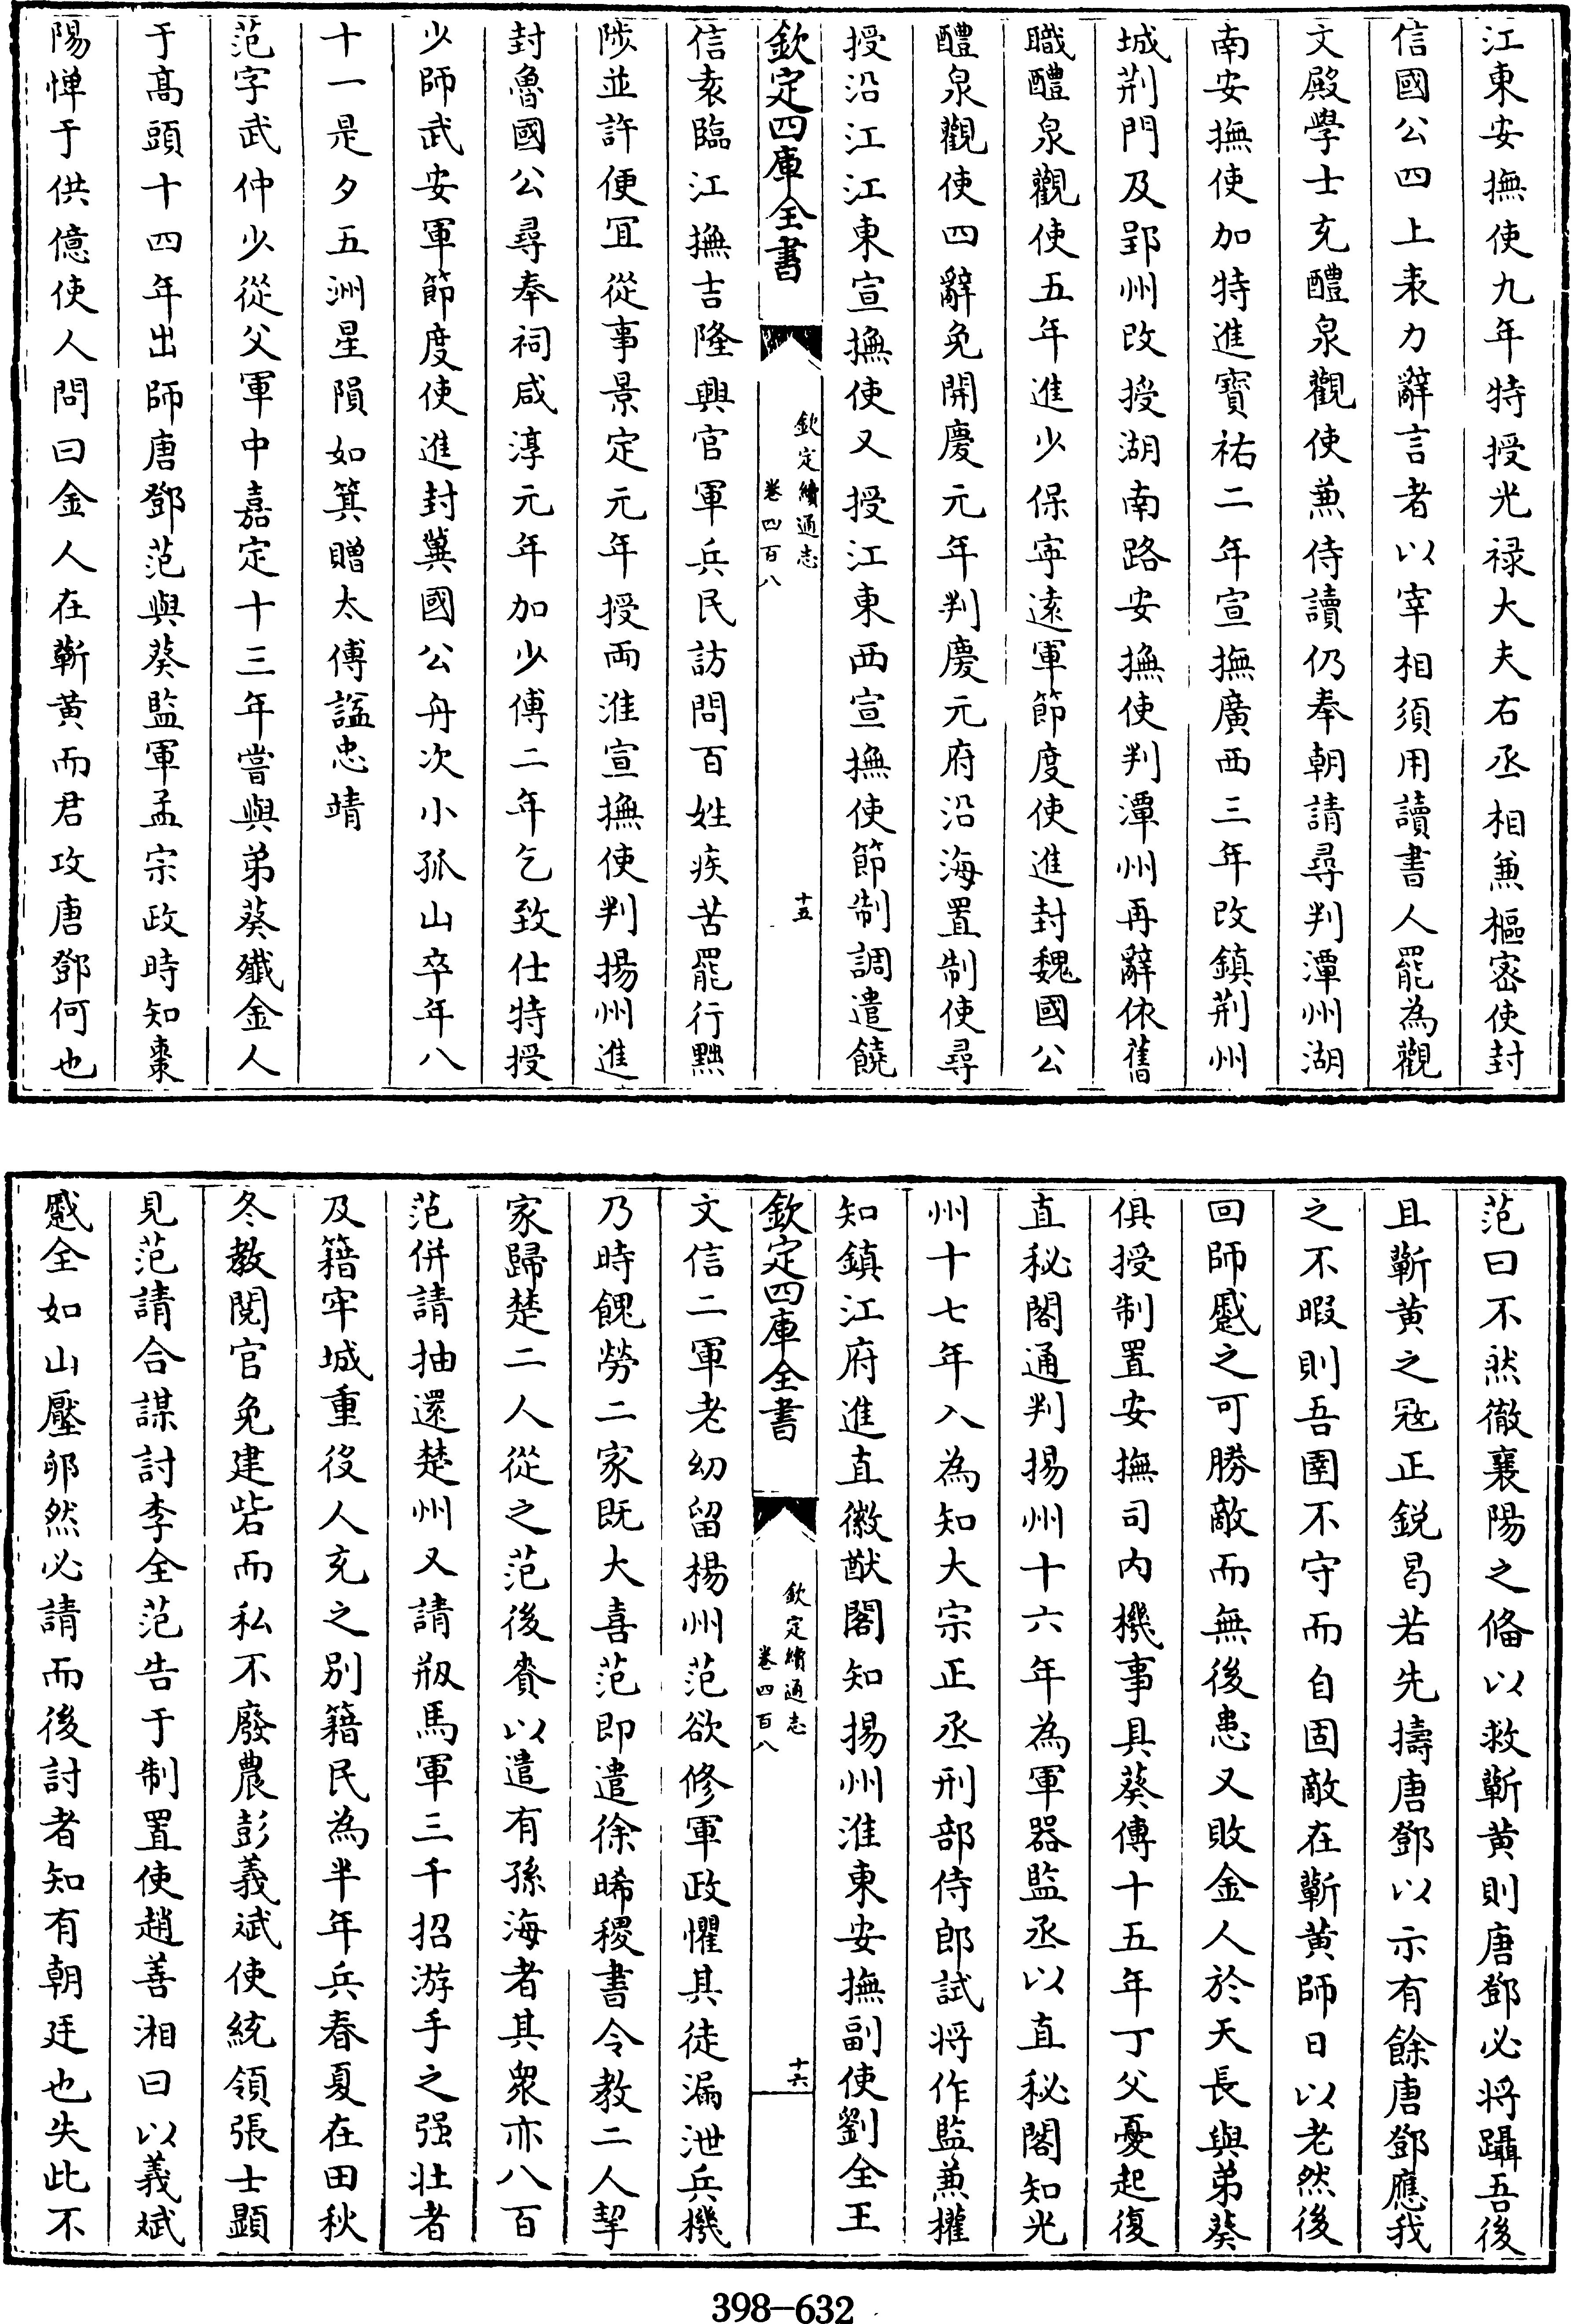 江東安撫使九年特授光禄大夫右丞相兼樞宻使封
信國公四上表力辭言者以宰相須用讀書人罷為觀
文殿學士充醴泉觀使兼侍讀仍奉朝請尋判潭州湖
南安撫使加特進寳祐二年宣撫廣西三年改鎮荆州
城荆門及郢州改授湖南路安撫使判潭州再辭依舊
職醴泉觀使五年進少保寧逺軍節度使進封魏國公
醴泉觀使四辭免開慶元年判慶元府沿海置制使尋
授沿江江東宣撫使又授江東西宣撫使節制調遣饒
欽定四庫全書
欽定續通志
卷四百八
十五
信袁臨江撫吉隆興官軍兵民訪問百姓疾苦罷行黜
陟並許便宜從事景定元年授兩淮宣撫使判揚州進
封魯國公尋奉祠咸淳元年加少傅二年乞致仕特授
少師武安軍節度使進封冀國公舟次小孤山卒年八
十一是夕五洲星隕如箕贈太傅諡忠靖
范字武仲少從父軍中嘉定十三年嘗與弟葵殱金人
于髙頭十四年出師唐鄧范與葵監軍孟宗政時知棗
陽憚于供億使人問曰金人在蘄黄而君攻唐鄧何也
范曰不然徹襄陽之備以救蘄黄則唐鄧必将躡吾後
且蘄黄之冦正鋭曷若先擣唐鄧以示有餘唐鄧應我
之不暇則吾圉不守而自固敵在蘄黄師日以老然後
回師蹙之可勝敵而無後患又敗金人於天長與弟葵
俱授制置安撫司内機事具葵傳十五年丁父憂起復
直秘閣通判揚州十六年為軍器監丞以直秘閣知光
州十七年入為知大宗正丞刑部侍郎試将作監兼權
知鎮江府進直徽猷閣知揚州淮東安撫副使劉全王
欽定四庫全書
欽定續通志
卷四百八
十六
文信二軍老幼留揚州范欲修軍政懼其徒漏泄兵機
乃時餽勞二家既大喜范即遣徐晞稷書令教二人挈
家歸楚二人從之范後賚以遣有孫海者其衆亦八百
范併請抽還楚州又請剏馬軍三千招游手之强壯者
及籍牢城重役人充之别籍民為半年兵春夏在田秋
冬教閲官免建砦而私不廢農彭義斌使統領張士顯
見范請合謀討李全范告于制置使趙善湘曰以義斌
蹙全如山壓卵然必請而後討者知有朝廷也失此不
398-632